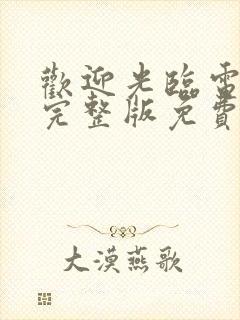 歡迎光臨雷
完整版免費
大漠燕歌